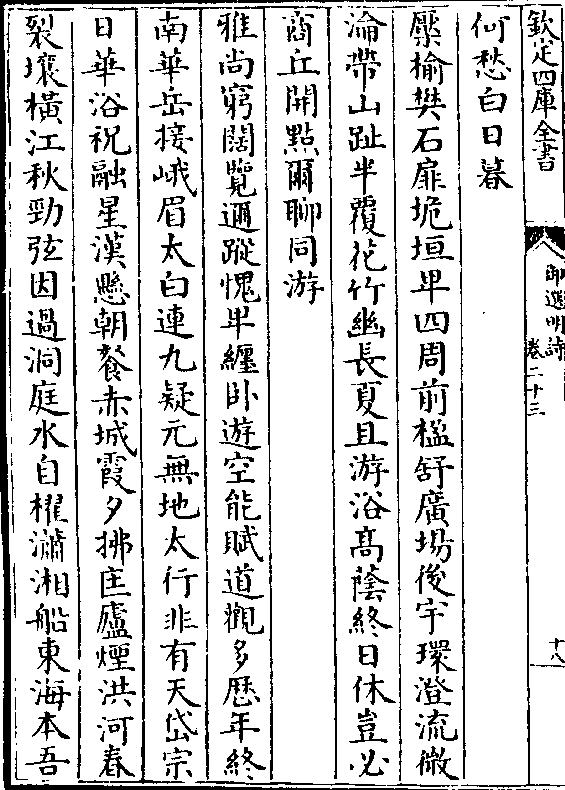 欽定四庫全書
御選明詩
卷二十三
十八
何愁白日暮
壓榆樊石扉垝垣卑四周前楹舒廣場後宇環澄流微
淪帶山趾半覆花竹幽長夏且游浴高蔭終日休豈必
商丘開點爾聊同游
雅尚窮闊覽邇蹤愧卑纏卧遊空能賦道觀多歴年終
南華岳接峨眉太白連九疑元無地太行非有天岱宗
日華浴祝融星漢懸朝餐赤城霞夕拂匡廬煙洪河春
裂壤橫江秋勁弦因過洞庭水自櫂瀟湘船東海本吾